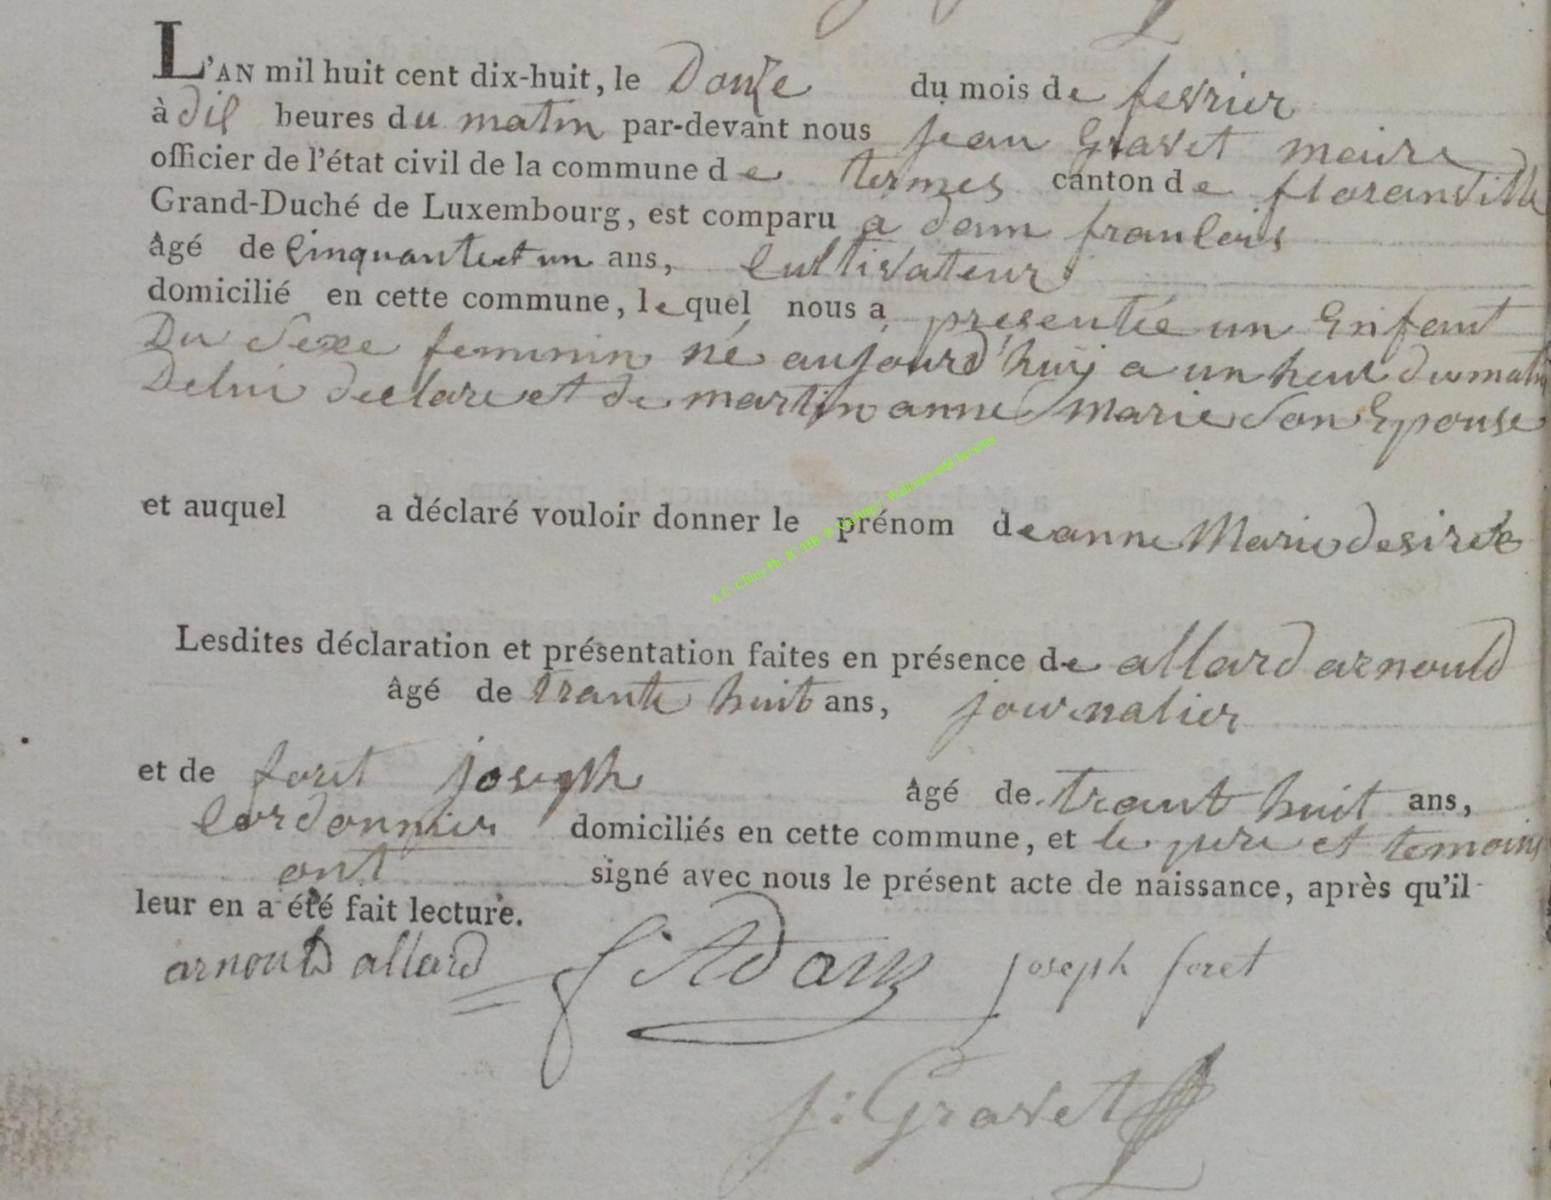 L'AN mil huit cent dix-huit, le Douze du mois de fevrier
à dix heures du matin par-devant nous jean Gravet maire
officier de l'état civil de la commune de termes canton de floranville
Grand-Duché de Luxembourg, est comparu adam francois
âgé de Cinquante et un ans, Cultivateur
domicilié en cette commune, lequel nous a presentée un Enfant
Du Sexe feminin né aujourd'huij a un heur du matin
De lui declare et de martin anne Marie Son Epouse
et auquel a déclaré vouloir donner le prénom de anne Marie desirée
Lesdites déclaration et présentation faites en présence de allard arnould
âgé de trante huit ans, journalier
et de foret joseph âgé de trant huit ans,
Cordonnier domiciliés en cette commune, et le pere et temoins
ont signé avec nous le présent acte de naissance, après qu'il
leur en a été fait lecture.
arnould allard f Adam joseph foret
j: Gravet